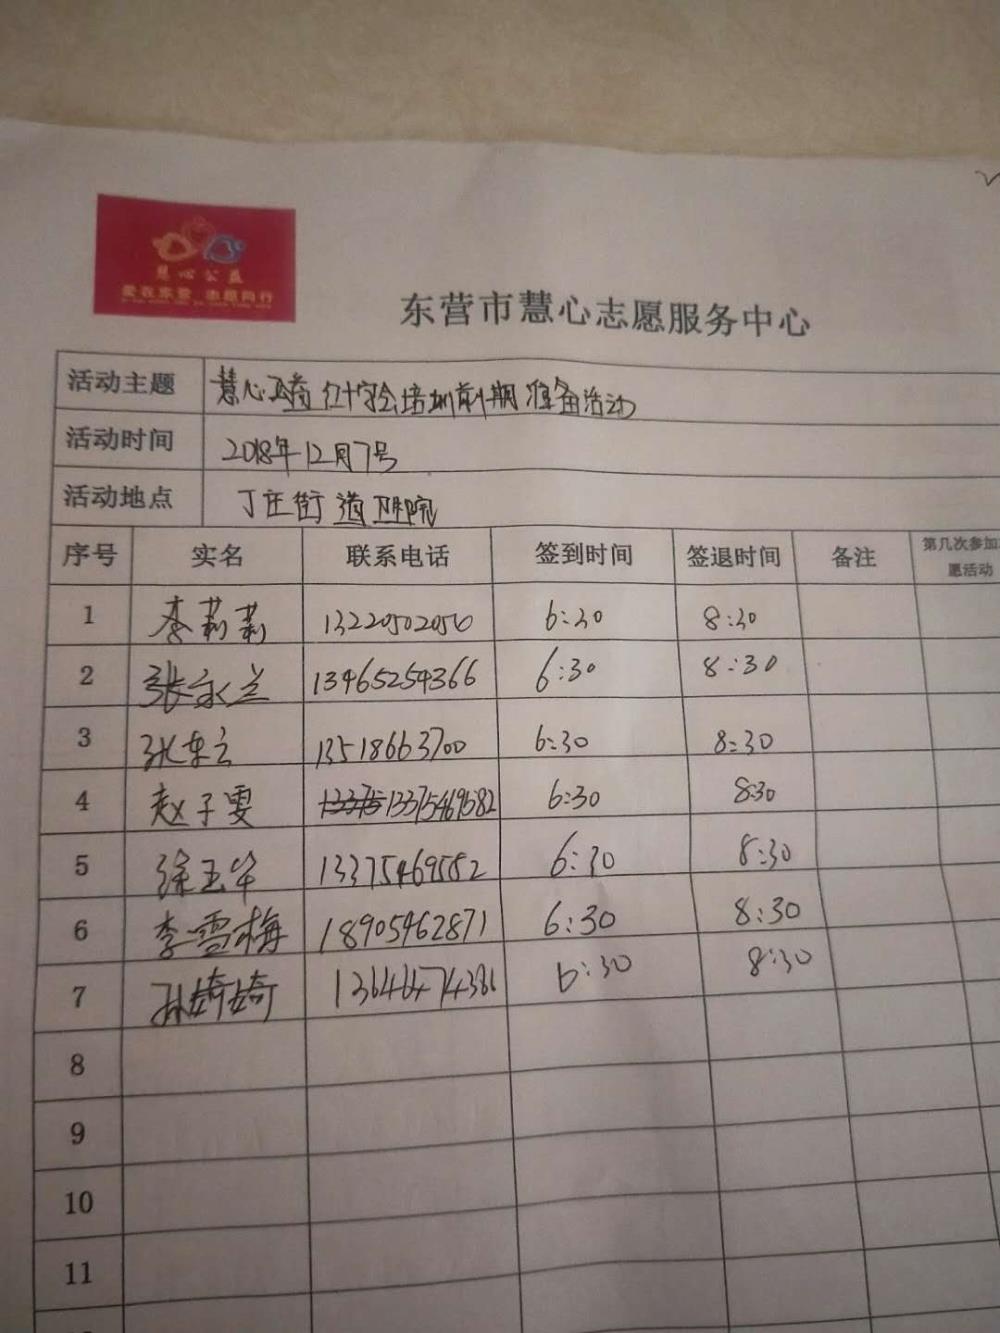 慧心公益
爱在东营 志愿同行
东营市慧心志愿服务中心
活动主题 慧心公益红十字会培训前期准备活动
活动时间 2018年12月7号
活动地点 丁庄街道卫生院
序号 实名 联系电话 签到时间 签退时间 备注 第几次参加
愿活动
1 李莉莉 13220502050 6:30 8:30
2 张永兰 13465254366 6:30 8:30
3 张东云 13518663700 6:30 8:30
4 赵子雯 13375 13375469582 6:30 8:30
5 徐玉华 13375469582 6:30 8:30
6 李雪梅 18905462871 6:30 8:30
7 孙婍婍 13646474386 6:30 8:30
8
9
10
11